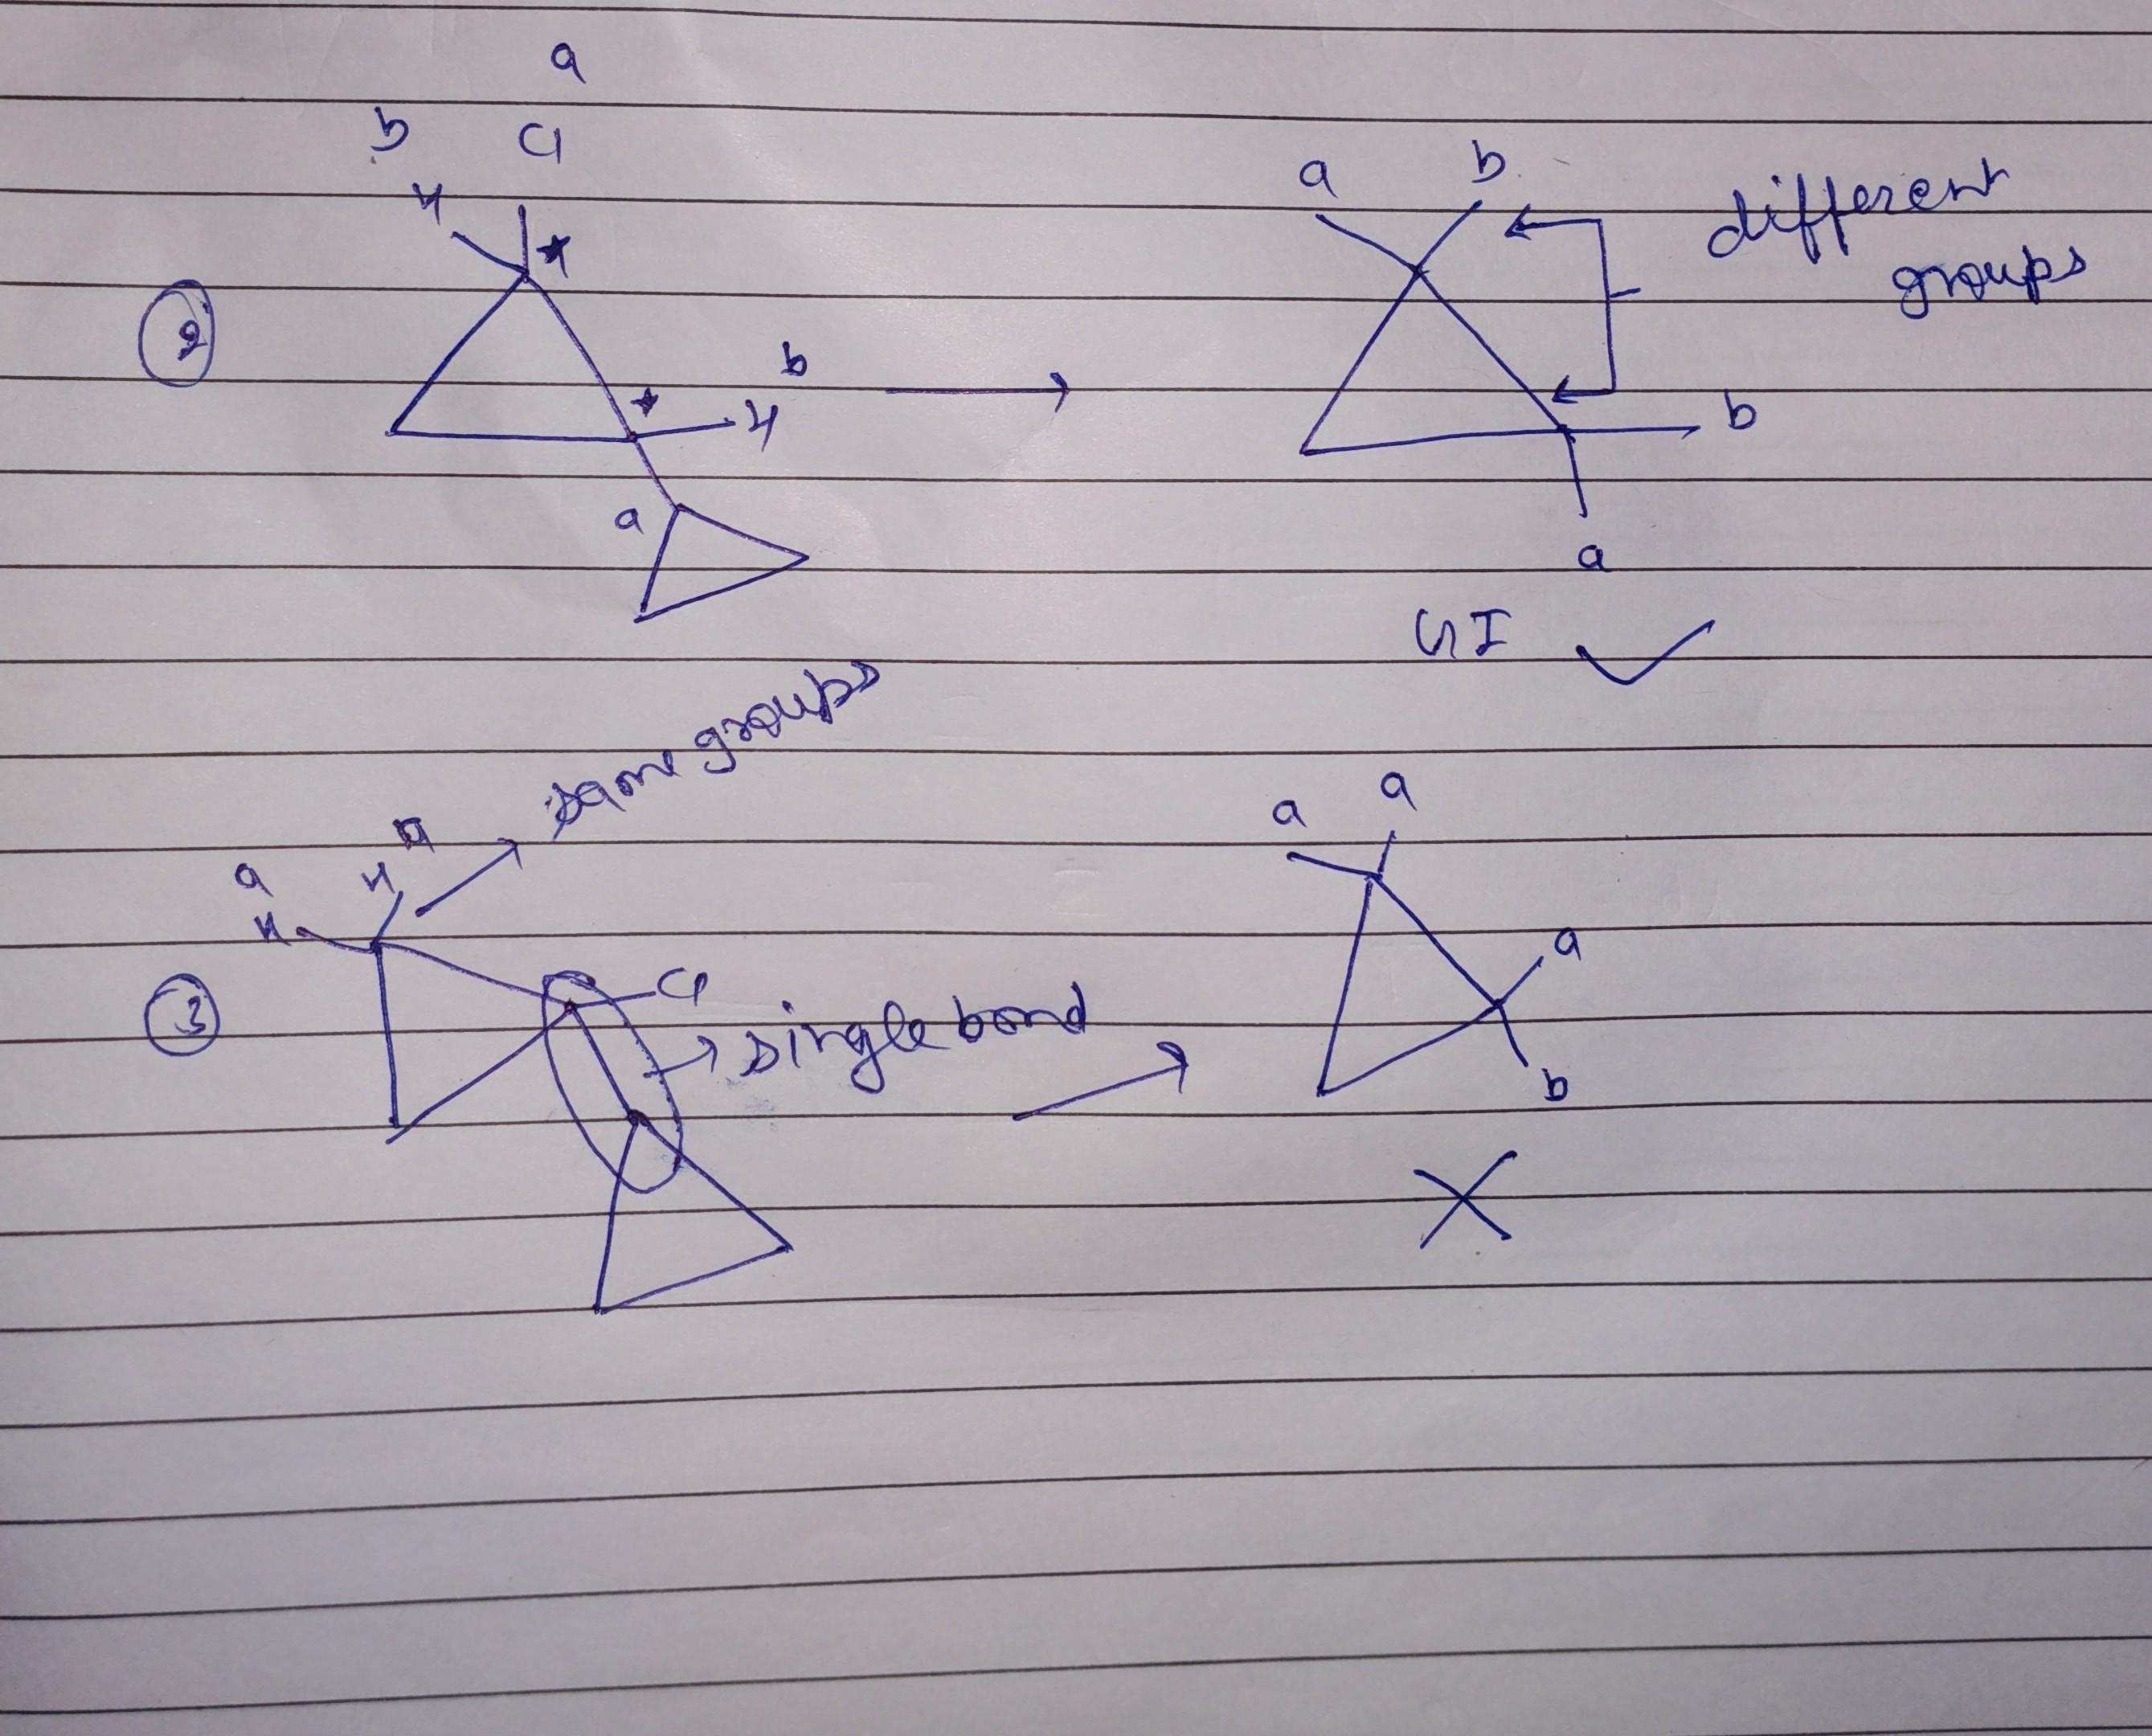 a
b Cl
H
a b
different
groups
②
b
H
b
a
a
GI
same groups
a a
a
H
a
H
Cl
③
single bond
b